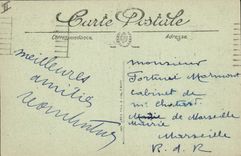 Carte Postale
Correspondance
Adresse
meilleures
amitiés
monsieur
Fortuné Marmont
cabinet de
mr
de Marseille
Mairie
Marseille
B. d. R.